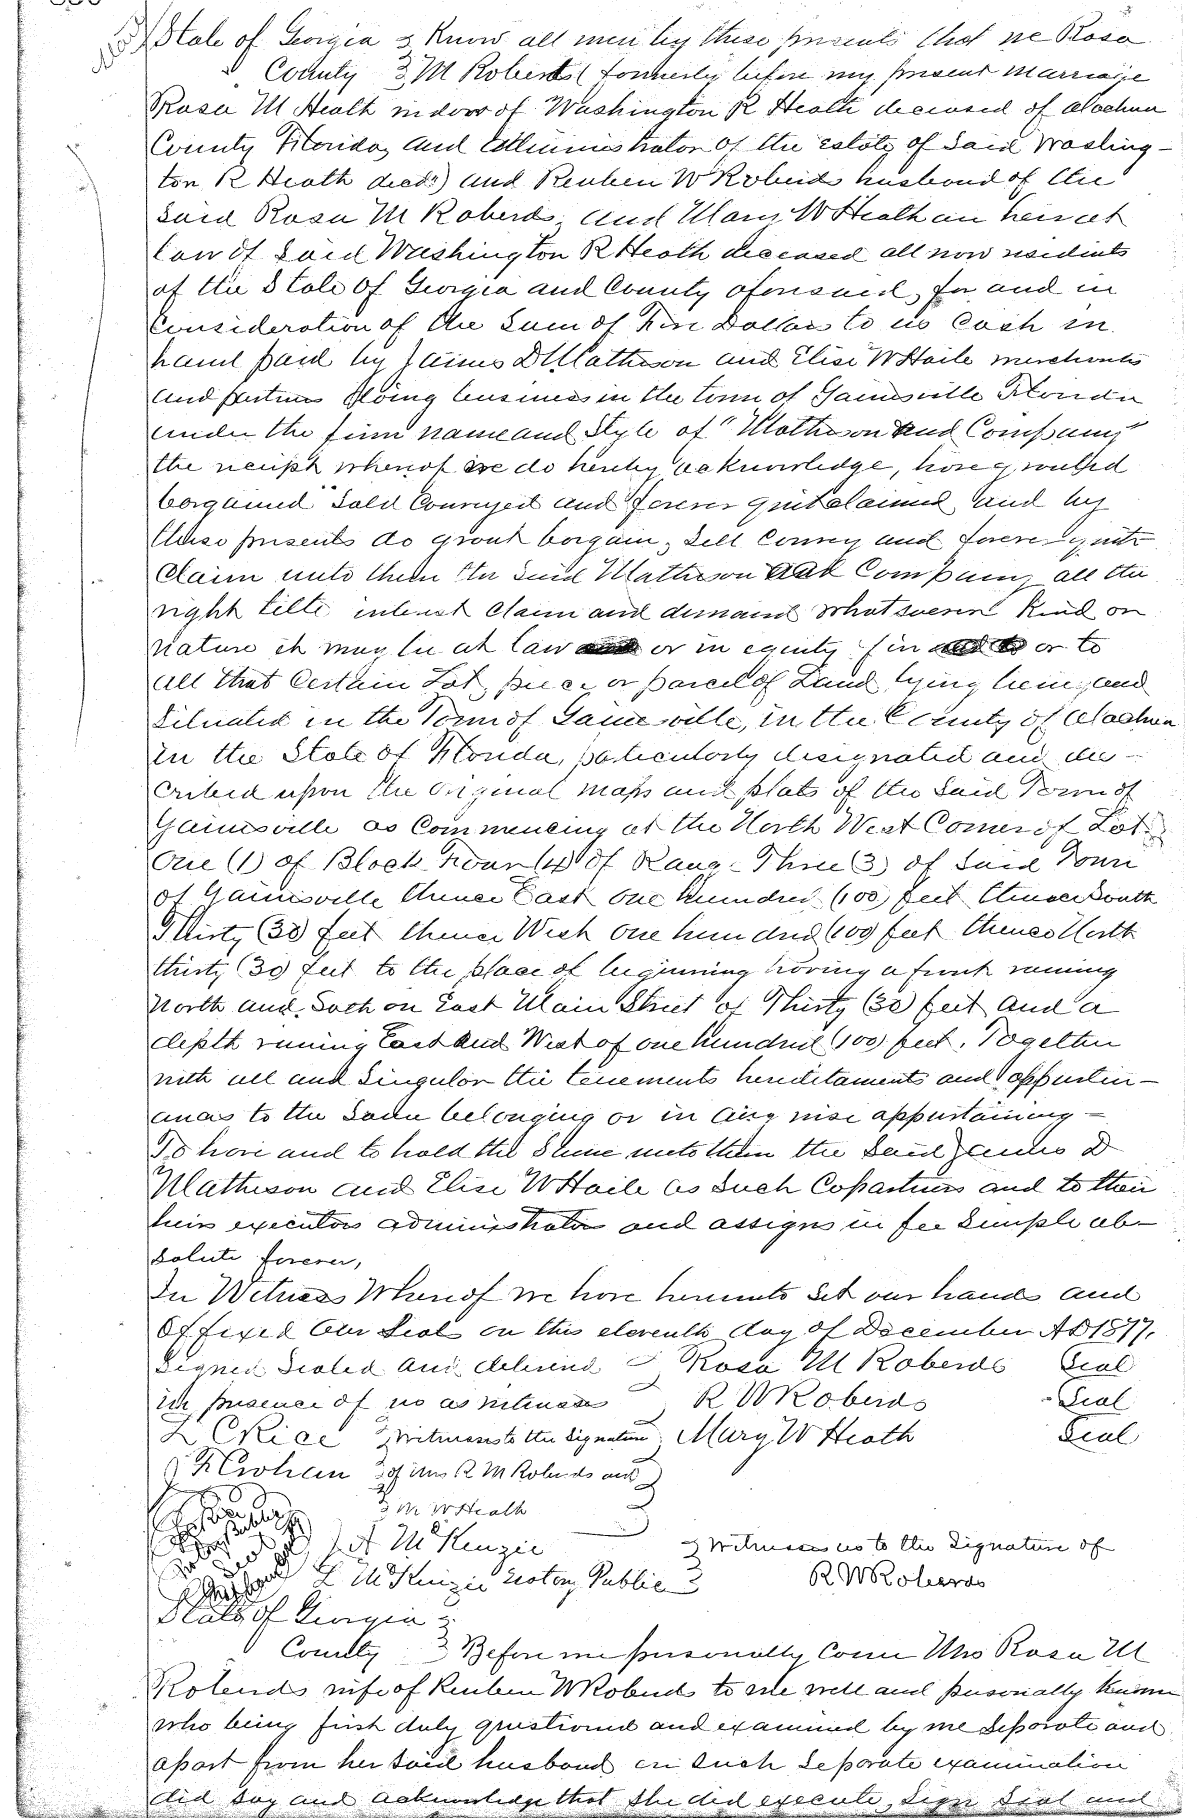 State of Georgia } Know all men by these presents that we Rosa
County } M Roberds (formerly before my present marriage
Rosa M Heath widow of Washington R Heath deceased of Alachua
County Florida, and Administrator of the estate of said Washing-
ton R Heath decd.) and Reuben W Roberds husband of the
said Rosa M Roberds, and Mary W Heath an heir at
law of said Washington R Heath deceased all now residents
of the State of Georgia and County aforesaid, for and in
Consideration of the Sum of Five Dollars to us Cash in
hand paid by James D Matheson and Elise W Haile merchants
and partners doing business in the town of Gainesville Florida
under the firm name and Style of "Matheson and Company"
the receipt whereof we do hereby acknowledge, have granted
bargained Sold Conveyed and forever quitclaimed and by
these presents do grant bargain, Sell Convey and forever quit
Claim unto them the Said Matheson and Company all the
right title interest Claim and demand whatsoever Kind or
Nature it may be at law or in equity in or to
all that Certain Lot, piece, or parcel of Land lying being and
Situated in the Town of Gainesville, in the County of Alachua
in the State of Florida, particularly designated and des-
cribed upon the original maps and plats of the Said Town of
Gainesville as Commencing at the North West Corner of Lot
One (1) of Block Four (4) of Range Three (3) of Said Town
of Gainesville thence East one hundred (100) feet thence South
Thirty (30) feet thence West one hundred (100) feet thence North
thirty (30) feet to the place of beginning having a front running
North and South on East Main Street of Thirty (30) feet and a
depth runing East and West of one hundred (100) feet. Together
with all and Singular the tenements hereditaments and appurten-
ances to the Same belonging or in any wise appurtaining -
To have and to hold the Same unto them the Said James D
Matheson and Elise W Haile as Such Copartners and to their
heirs executors administrators and assigns in fee Simple ab-
solute forever,
In Witness Whereof we have hereunto Set our hands and
affixed Our Seals on this eleventh day of December AD 1877.
Signed Sealed and delivered Rosa M Roberds Seal
in presence of us as witnesses R W Roberds Seal
L C Rice } Witnesses to the Signature Mary W Heath Seal
} of Mrs R M Roberds and
} M W Heath
A McKenzie } Witnesses as to the Signature of
L McKenzie Notary Public } R W Roberds
State of Georgia }
County } Before me personally Come Mrs Rosa M
Roberds wife of Reuben W Roberds to me well and personally known
who being first duly questioned and examined by me Separate and
apart from her Said husband on Such Separate examination
did Say and acknowledge that She did execute, Sign Seal and